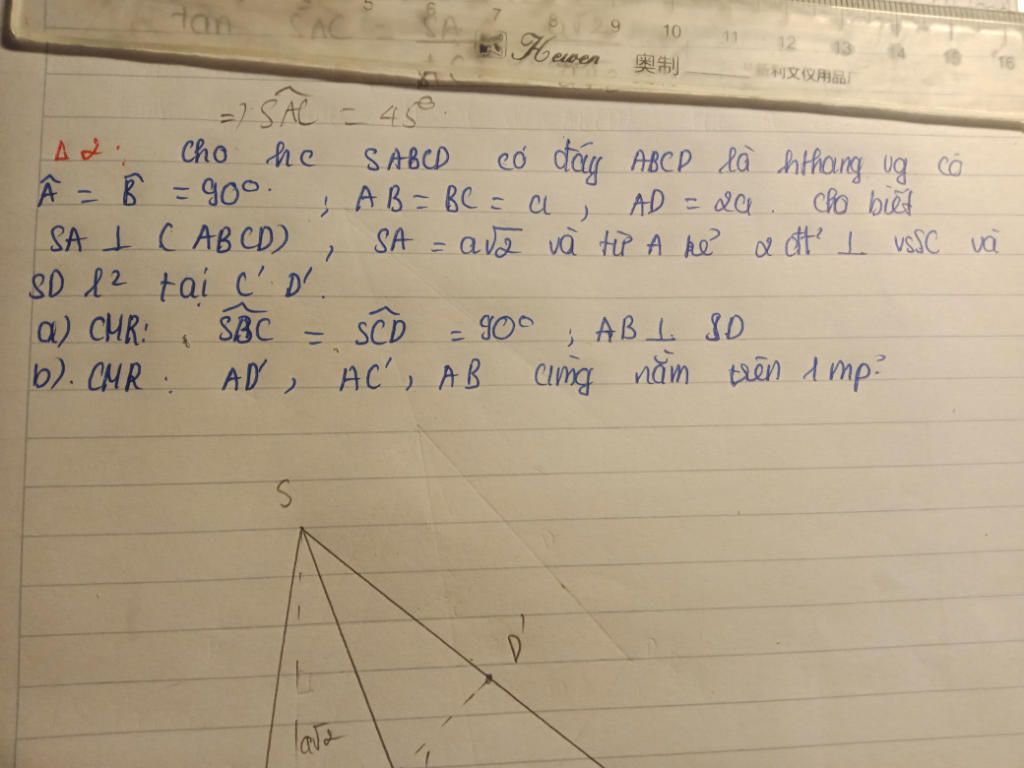 tan SAC = SA
7 8 9 10 11 12 13 14 15 16
Hewen 奥制
=> SAC = 45°
Δ 2: Cho hc SABCD có đáy ABCD là hthang vg có
Â = B̂ = 90°. ; AB = BC = a , AD = 2a . Cho biết
SA ⊥ (ABCD) , SA = a√2 và từ A kẻ 2 đt' ⊥ vs SC và
SD l² tại C' D'.
a) CMR: SBC = SCD = 90° ; AB ⊥ SD
b). CMR : AD' , AC' , AB cùng nằm trên 1 mp?
S
D'
a√2